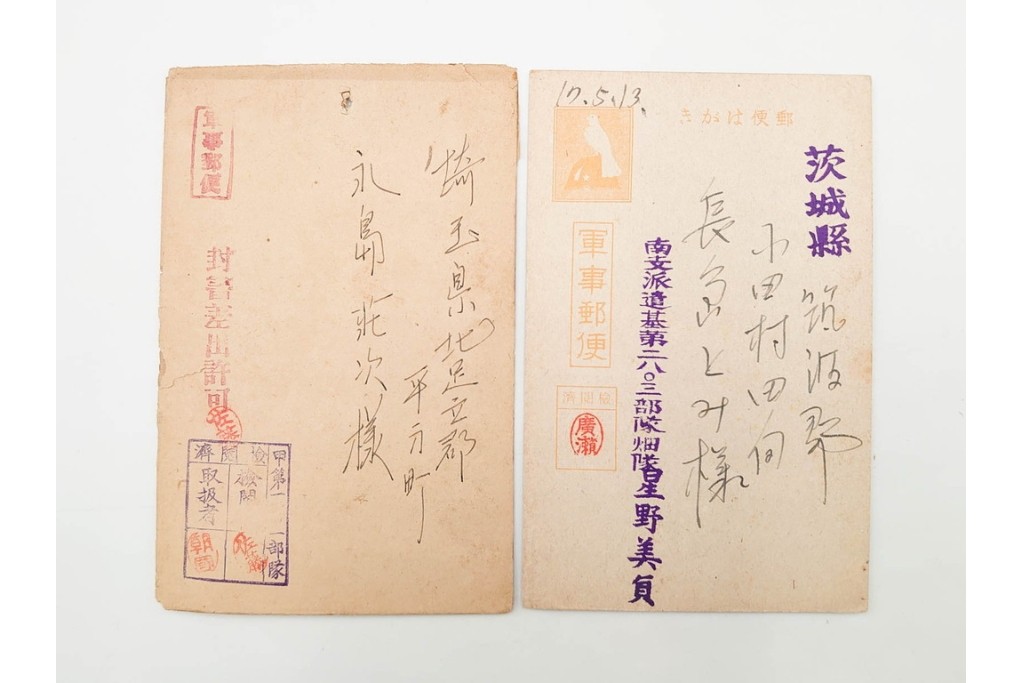 軍事郵便
封書差出許可
検閲濟
甲第一 一部隊
検閲
取扱者
朝
埼玉県北足立郡
平方町
永島莊次様
17.5.13.
郵便はがき
軍事郵便
検閲済
廣瀬
茨城縣
筑波郡
小田村田向
長島とみ様
南支派遣基第二八〇三部隊畑隊
星野美貞